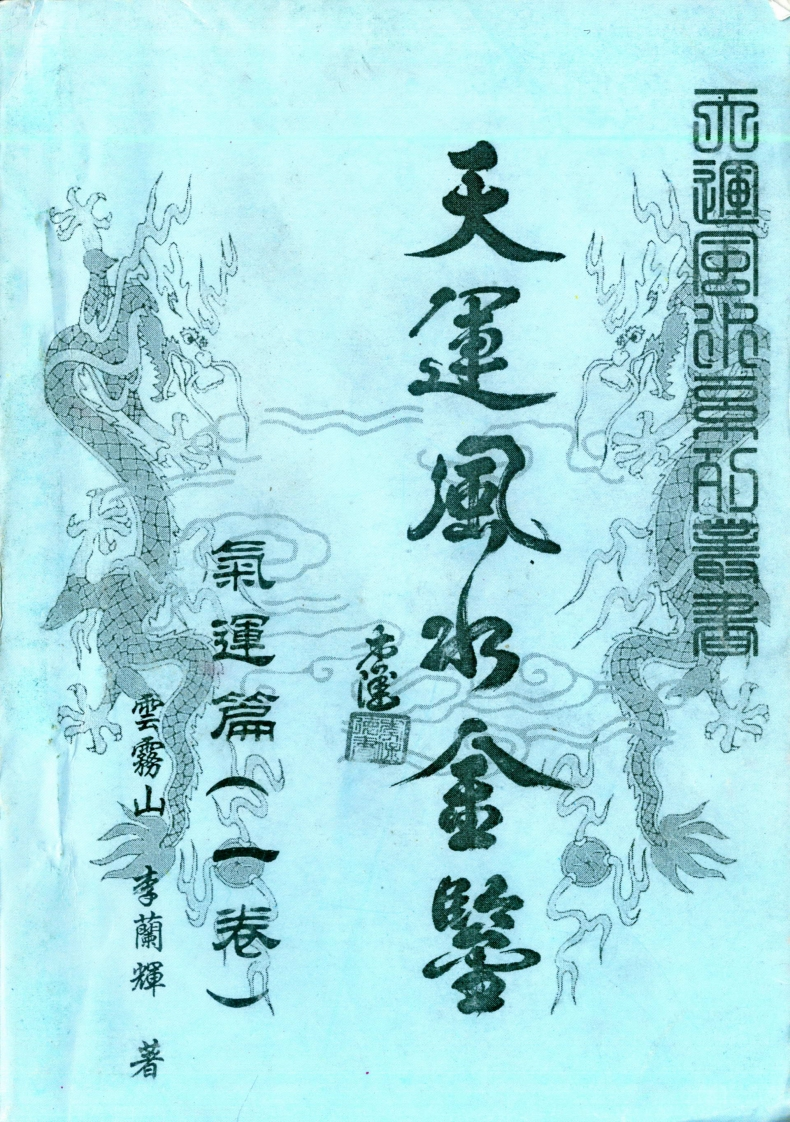 天運風水系列叢書
天運風水金鑒
氣運篇（一卷）
雲霧山 李蘭輝 著